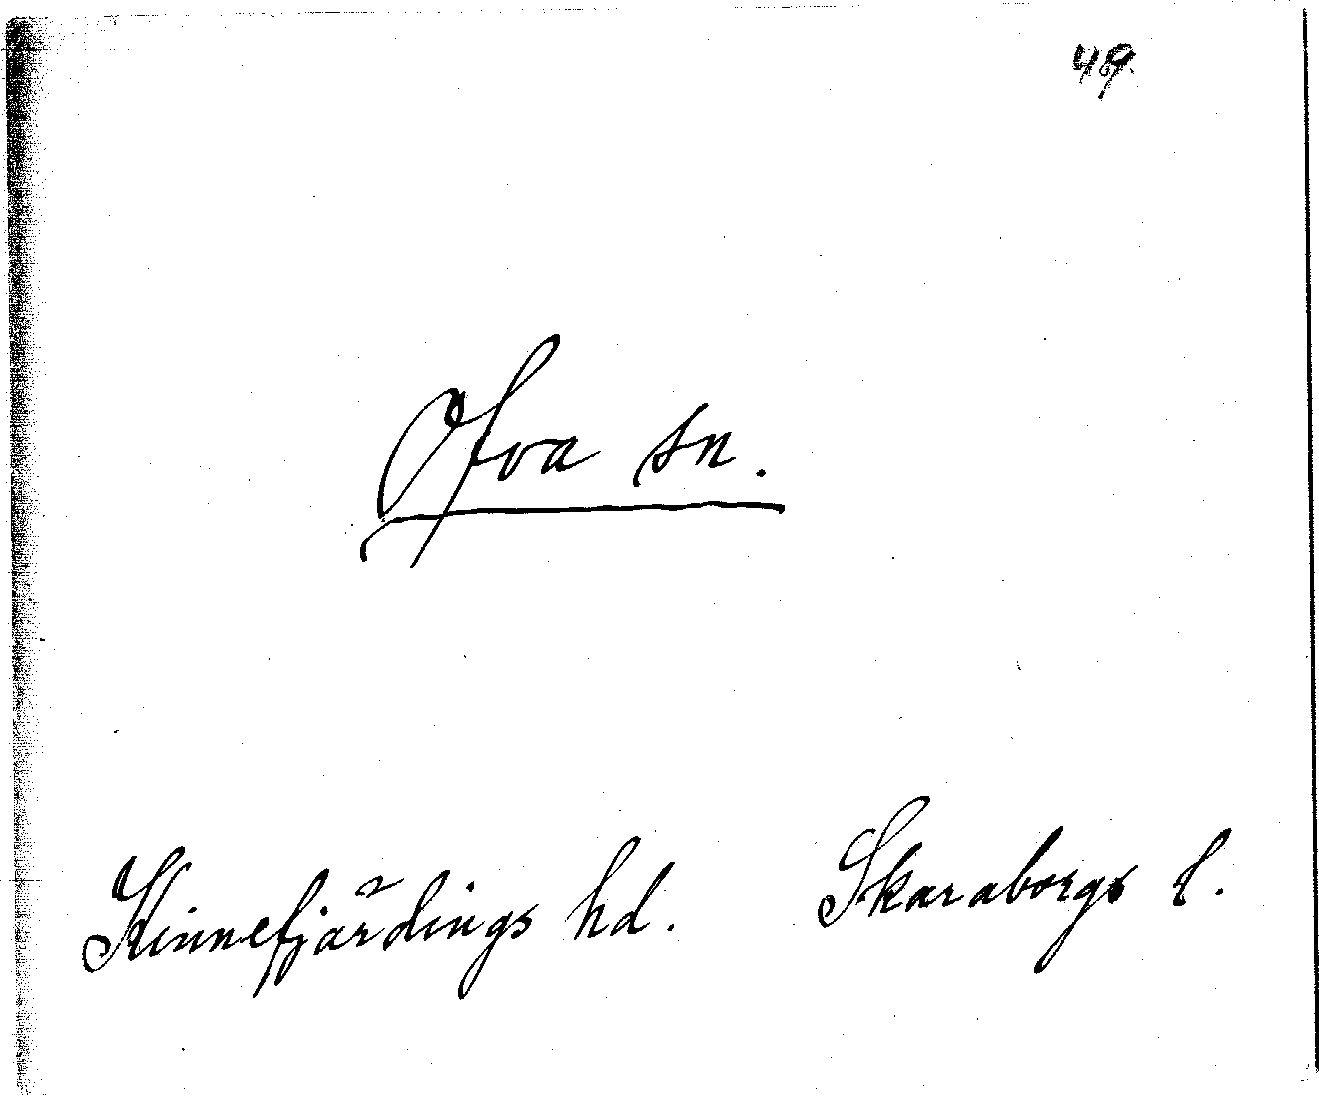 49.
Ofva sn.
Kinnefjärdings hd. Skaraborgs l.